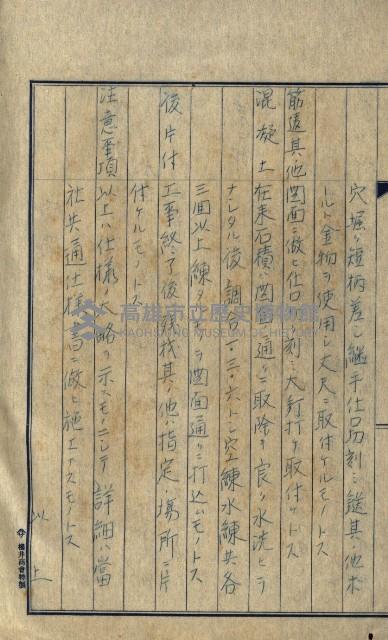 穴堀リ短柄差シ継手仕口切刻ミ鎹其ノ他ボ
ールト金物ヲ使用シ丈夫ニ取付ケルモノトス
筋違其ノ他図面ニ倣ヒ仕口切刻ミ大釘打チ取付ケトス
混凝土 在来石積ハ図面通リニ取除キ良ク水洗ヒヲ
ナシタル後調合一・三・六トシ空練水練共各
三回以上練タモノヲ図面通リニ打込ムモノトス
後片付 工事終了後残材其ノ他ハ指定ノ場所ニ片
付ケルモノトス
注意事項 以上ハ仕様ノ大略ヲ示スモノニシテ詳細ハ當
社共通仕様書ニ倣ヒ施工ナスモノトス
以上
櫻井商會特製
高雄市立歷史博物館
KAOHSIUNG MUSEUM OF HISTORY